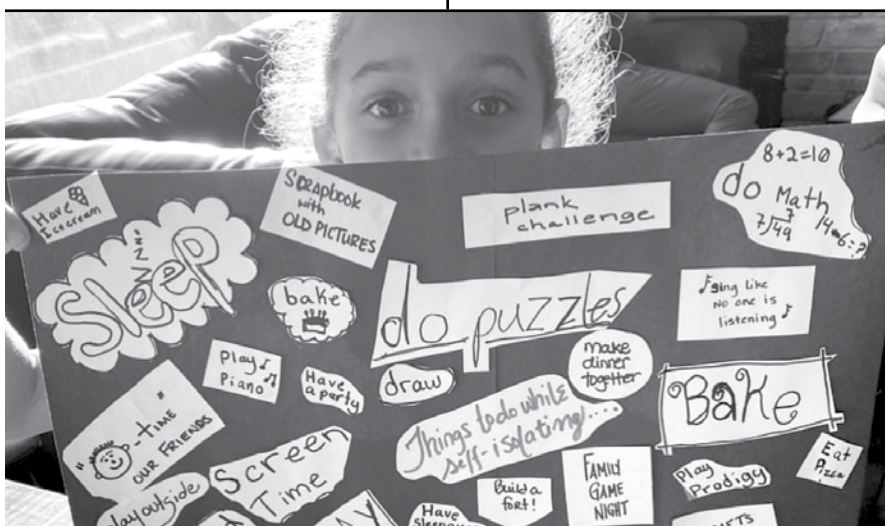 Have
Icecream
SCRAPBOOK
with
OLD PICTURES
plank
challenge
8+2=10
do Math
7
7√49
14-6=?
ZZZZ
Sleep
bake
do puzzles
♪Sing like
no one is
listening♪
Play ♪
Piano ♫
Have
a party
draw
make
dinner
together
"-TIME"
OUR FRIENDS
Things to do while
self-isolating....
Bake
Screen
Time
Play outside
Build a
fort!
FAMILY
GAME
NIGHT
Play
Prodigy
Eat
Pizza
Have